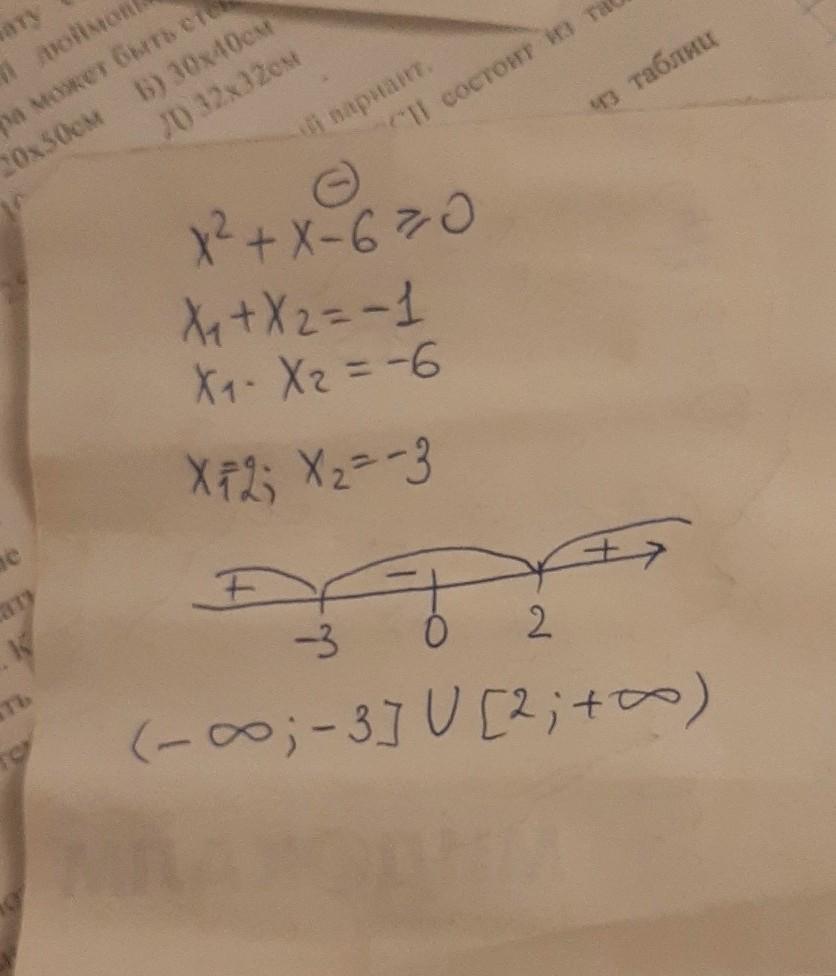 ра может быть
20х50см Б) 30х40см
Д) 32х32см
вариант.
состоит из
из таблиц
⊖
x² + x - 6 ⩾ 0
x₁ + x₂ = -1
x₁ · x₂ = -6
x₁=2; x₂ = -3
+ - +
-3 0 2
(-∞; -3] ∪ [2; +∞)